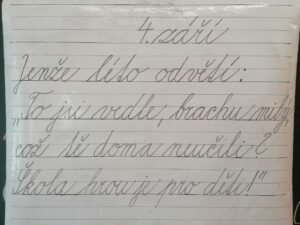 4. září
Jenže léto odvětí:
„To jsi vedle, brachu milý,
což tě doma neučili?
Škola hrou je pro děti!"